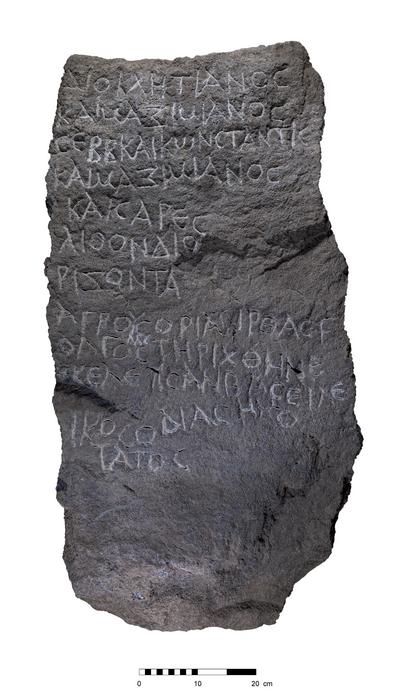 ΔΙΟΚΛΗΤΙΑΝΟC
ΚΑΙΜΑΞΙΜΙΑΝΟC
CΕΒΒΚΑΙΚωΝCΤΑΝΤΙC
ΚΑΙΜΑΞΙΜΙΑΝΟC
ΚΑΙCΑΡΕC
ΛΙΘΟΝΔΙΟ
ΡΙΖΟΝΤΑ
ΑΓΡΟΥCΟΡΙΑ
CΤΗΡΙΧΘΗΝΕ
ΕΚΕΛΕΥCΑΝ
ΙΚΟCΟΔΙΑCΗΜΟ
ΤΑΤΟC
0 10 20 cm